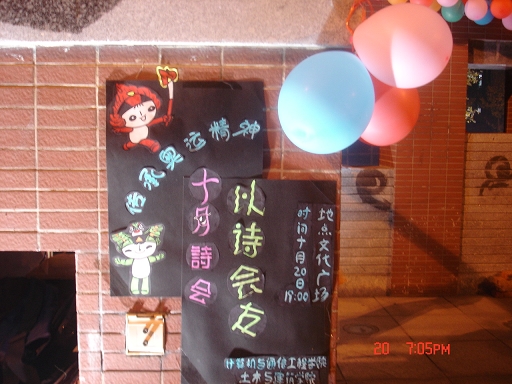 传承奥运精神
十月詩会
以诗会友
地点文化广场
时间十月20日
18:00
计算机与通信工程学院
土木与建筑学院
20 7:05PM